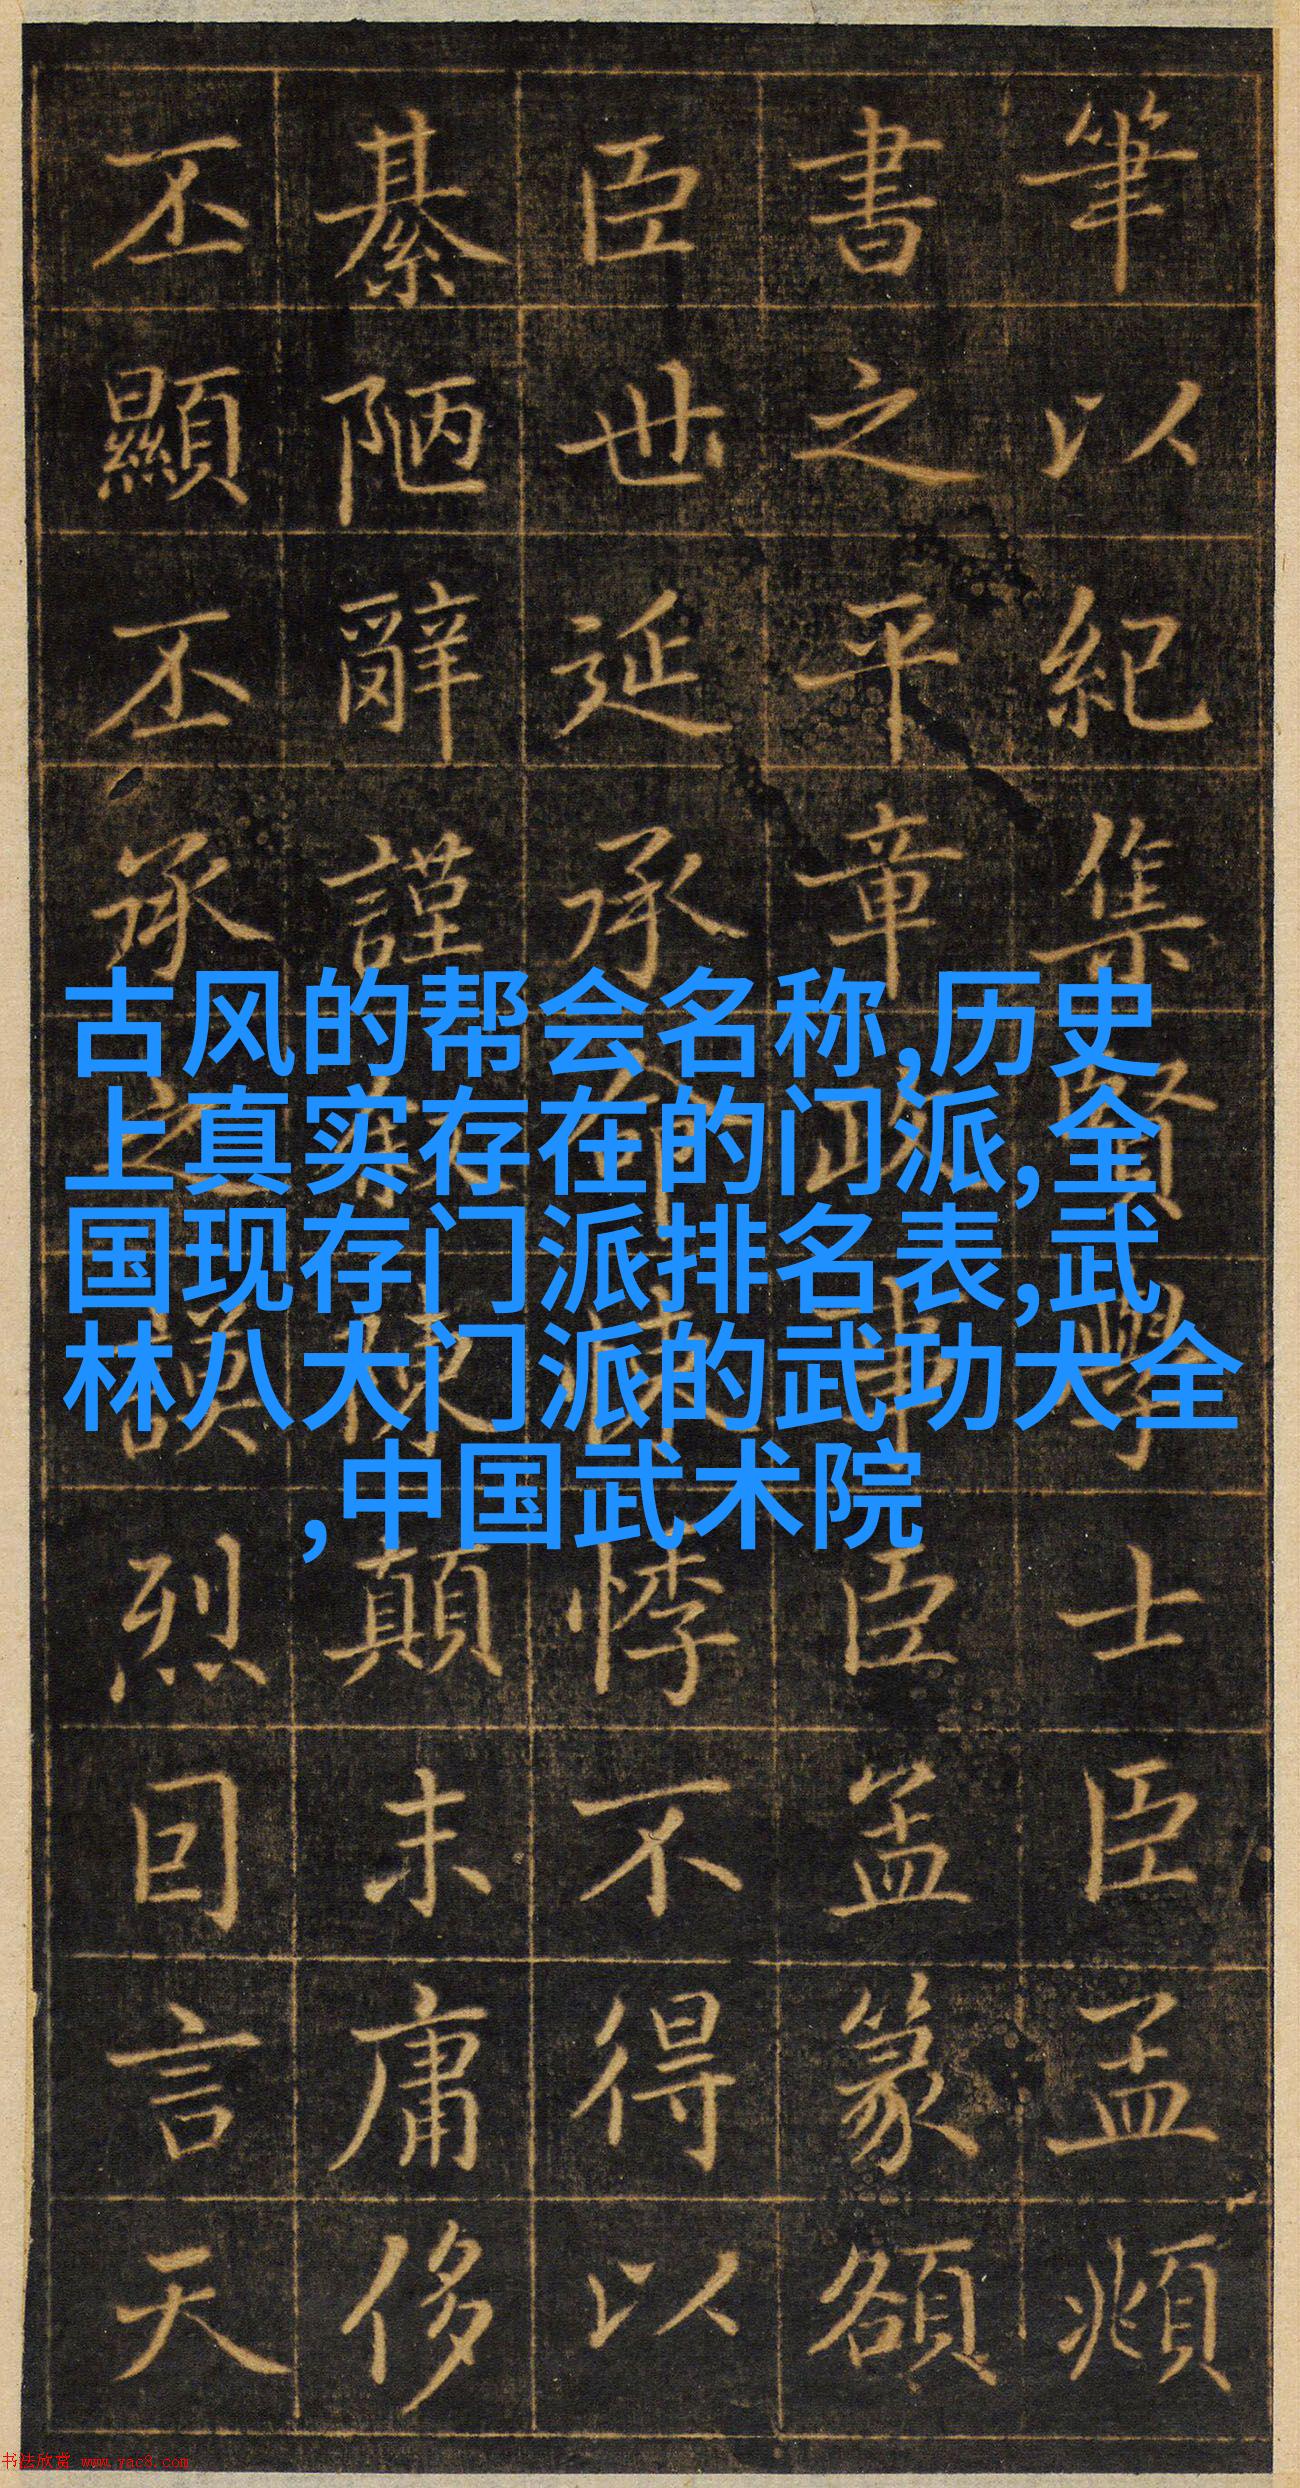 筆以紀集賢學士臣孟頫
書之平章政事臣篆額
臣世延承命悸不得以
綦陋辭謹顛末庸侈
丕顯丕承之謨烈囙言天
古风的帮会名称,历史
上真实存在的门派,全
国现存门派排名表,武
林八大门派的武功大全
,中国武术院
书法欣赏 www.yac8.com